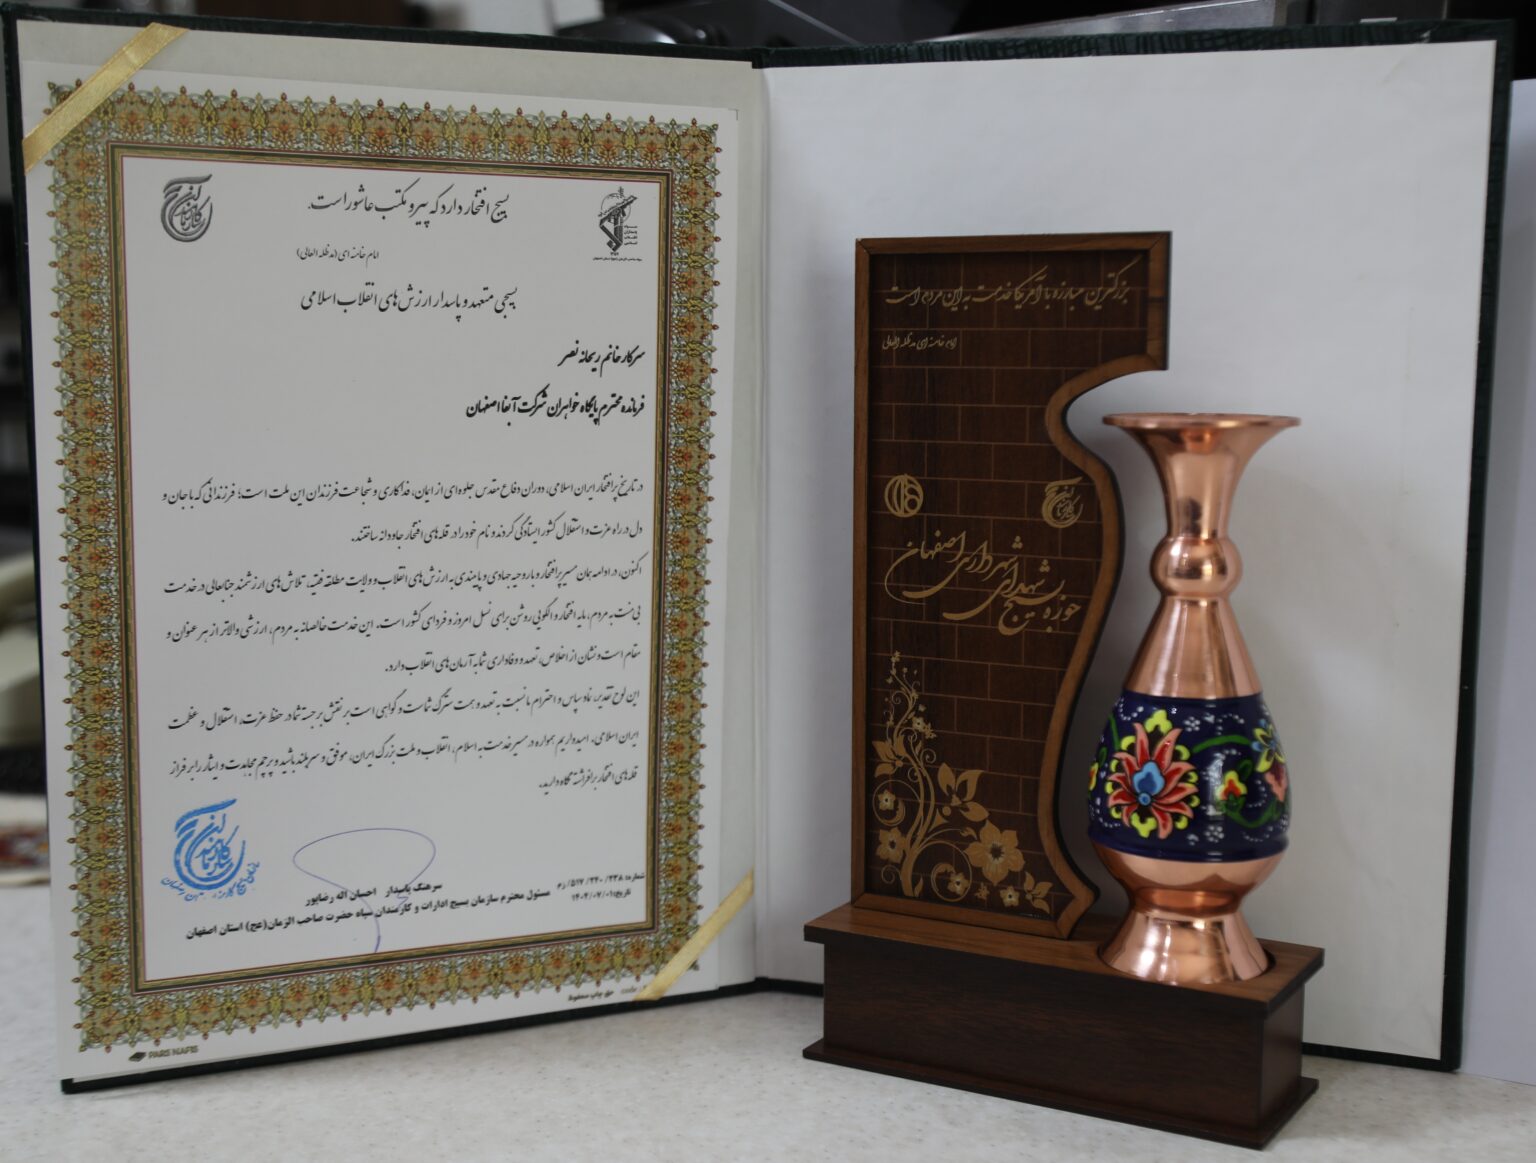 بسیج افتخار دارد که پیرو مکتب عاشوراست.
امام خامنه ای (مدظله العالی)
بسیجی متعهد و پاسدار ارزش های انقلاب اسلامی
سرکار خانم ریحانه نصر
فرمانده محترم پایگاه خواهران شرکت آبفا اصفهان
در تاریخ پرافتخار ایران اسلامی، دوران دفاع مقدس جلوه ای از ایمان، فداکاری و شجاعت فرزندان این ملت است؛ فرزندانی که با جان و
دل در راه عزت و استقلال کشور ایستادگی کردند و نام خود را در قله های افتخار جاودانه ساختند.
اکنون، در ادامه همان مسیر پرافتخار و با روحیه جهادی و پایبندی به ارزش های انقلاب و ولایت مطلقه فقیه، تلاش های ارزشمند جنابعالی در خدمت
بی منت به مردم، مایه افتخار و الگویی روشن برای نسل امروز و فردای کشور است. این خدمت خالصانه به مردم، ارزشی والاتر از هر عنوان و
مقام است و نشان از اخلاص، تعهد و وفاداری شما به آرمان های انقلاب دارد.
این لوح تقدیر، نماد سپاس و احترام ما نسبت به تعهد و همت سترگ شماست و گواهی است بر نقش برجسته شما در حفظ عزت، استقلال و عظمت
ایران اسلامی. امیدواریم همواره در مسیر خدمت به اسلام، انقلاب و ملت بزرگ ایران، موفق و سربلند باشید و پرچم مجاهدت و ایثار را بر فراز
قله های افتخار برافراشته نگاه دارید.
شماره: ۲۳۸/ ۲۴۰/ ۵۱۷/ م
تاریخ: ۱۴۰۴/۰۷/۰۱
سرهنگ پاسدار احسان اله رضاپور
مسئول محترم سازمان بسیج ادارات و کارمندان سپاه حضرت صاحب الزمان(عج) استان اصفهان
حق چاپ محفوظ
PARS NAFIS
بزرگترین مبارزه با آمریکا خدمت به این مردم است
امام خامنه ای مدظله العالی
حوزه بسیج
شهدای
شهرداری اصفهان